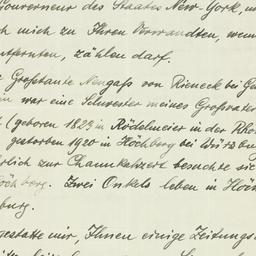 Gouverneur des Staates New-York, u
ch mich zu Ihren Verwandten, wenn
ntfernten, zählen darf.
Großtante Neugaß von Rieneck bei G
n war eine Schwester meines Großvater
(geboren 1823 in Rödelmeier in der Rhö
gestorben 1920 in Höchberg bei Würzbu
rlich zur Channkahzeit besuchte sie
öchberg. Zwei Onkels leben in Höch
burg.
gestatte mir, Ihnen einige Zeitungs